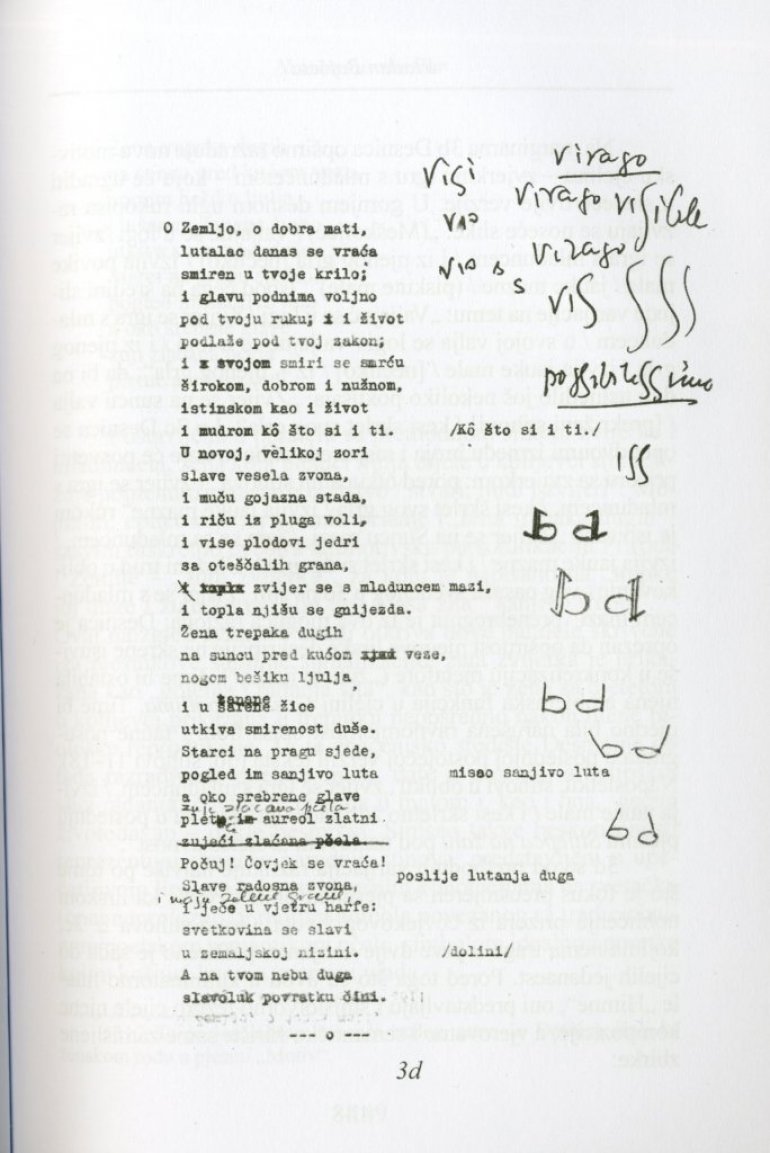 visi
virago
virago visibile
vio
virago
vio s s
vis
possibilessimo
iss
O Zemljo, o dobra mati,
lutalac danas se vraća
smiren u tvoje krilo;
i glavu podnima voljno
pod tvoju ruku; i život
podlaže pod tvoj zakon;
i s svojom smiri se smrću
širokom, dobrom i nužnom,
istinskom kao i život
i mudrom kô što si i ti. /Kô što si i ti./
U novoj, velikoj zori
slave vesela zvona,
i muču gojazna stada,
i riču iz pluga voli,
v vise plodovi jedri
sa oteščalih grana,
i topla zvijer se s mladuncem mazi,
i topla njišu se gnijezda.
Žena trepaka dugih
na suncu pred kućom veze,
nogom bešiku ljulja
tanane
i u šarene žice
utkiva smirenost duše.
Starci na pragu sjede,
pogled im sanjivo luta misao sanjivo luta
a oko srebrene glave
zuji zlaćana pčela
plete im aureol zlatni
zujeći zlaćana pčela.
Počuj! Čovjek se vraća!
poslije lutanja duga
Slave radosna zvona,
i mašu zeleni grani,
i ječe u vjetru harfe:
svetkovina se slavi
u zemaljskoj nizini. /dolini/
A na tvom nebu duga
slavoluk povratku čini.
--- o ---
bd
bd
bd
bd
bd
3d